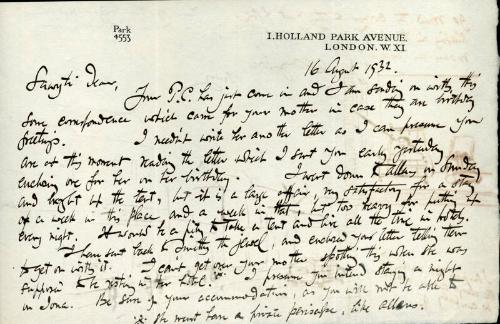 Park
4553
1. HOLLAND PARK AVENUE.
LONDON. W.XI.
16 August 1932.
Dear,
Your P.C. has just come in and I am sending on with this
some correspondence which came for your mother in case they are birthday
greetings. I needn't write her another letter as I can presume you
are at this moment reading the letter which I sent you early yesterday
enclosing one for her on her birthday. I went down to on Sunday
and brought up the tent, but it is a large affair, very satisfactory for a stay
of a week in this place, and a week in that, but too heavy for putting up
every night. It would be a pity to take a tent and live all the time in hotels.
I have sent back to the jewel, and enclosed your letter telling them
to get on with it. I can't get over your mother spotting this when she was
supposed to be resting in her hotel. I presume you intend staying a night
on Iona. Be sure of your accommodation, as you will not be able to
a private, like